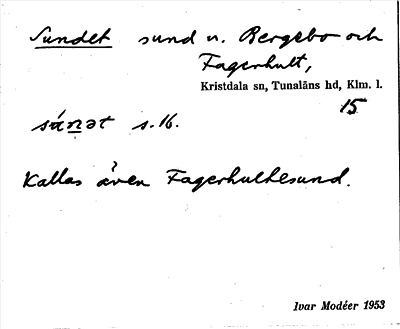 Sundet sund n. Bergsbo och
Fagerhult,
Kristdala sn, Tunaläns hd, Klm. l.
15
sánət s. 16.
Kallas även Fagerhultesund.
Ivar Modéer 1953